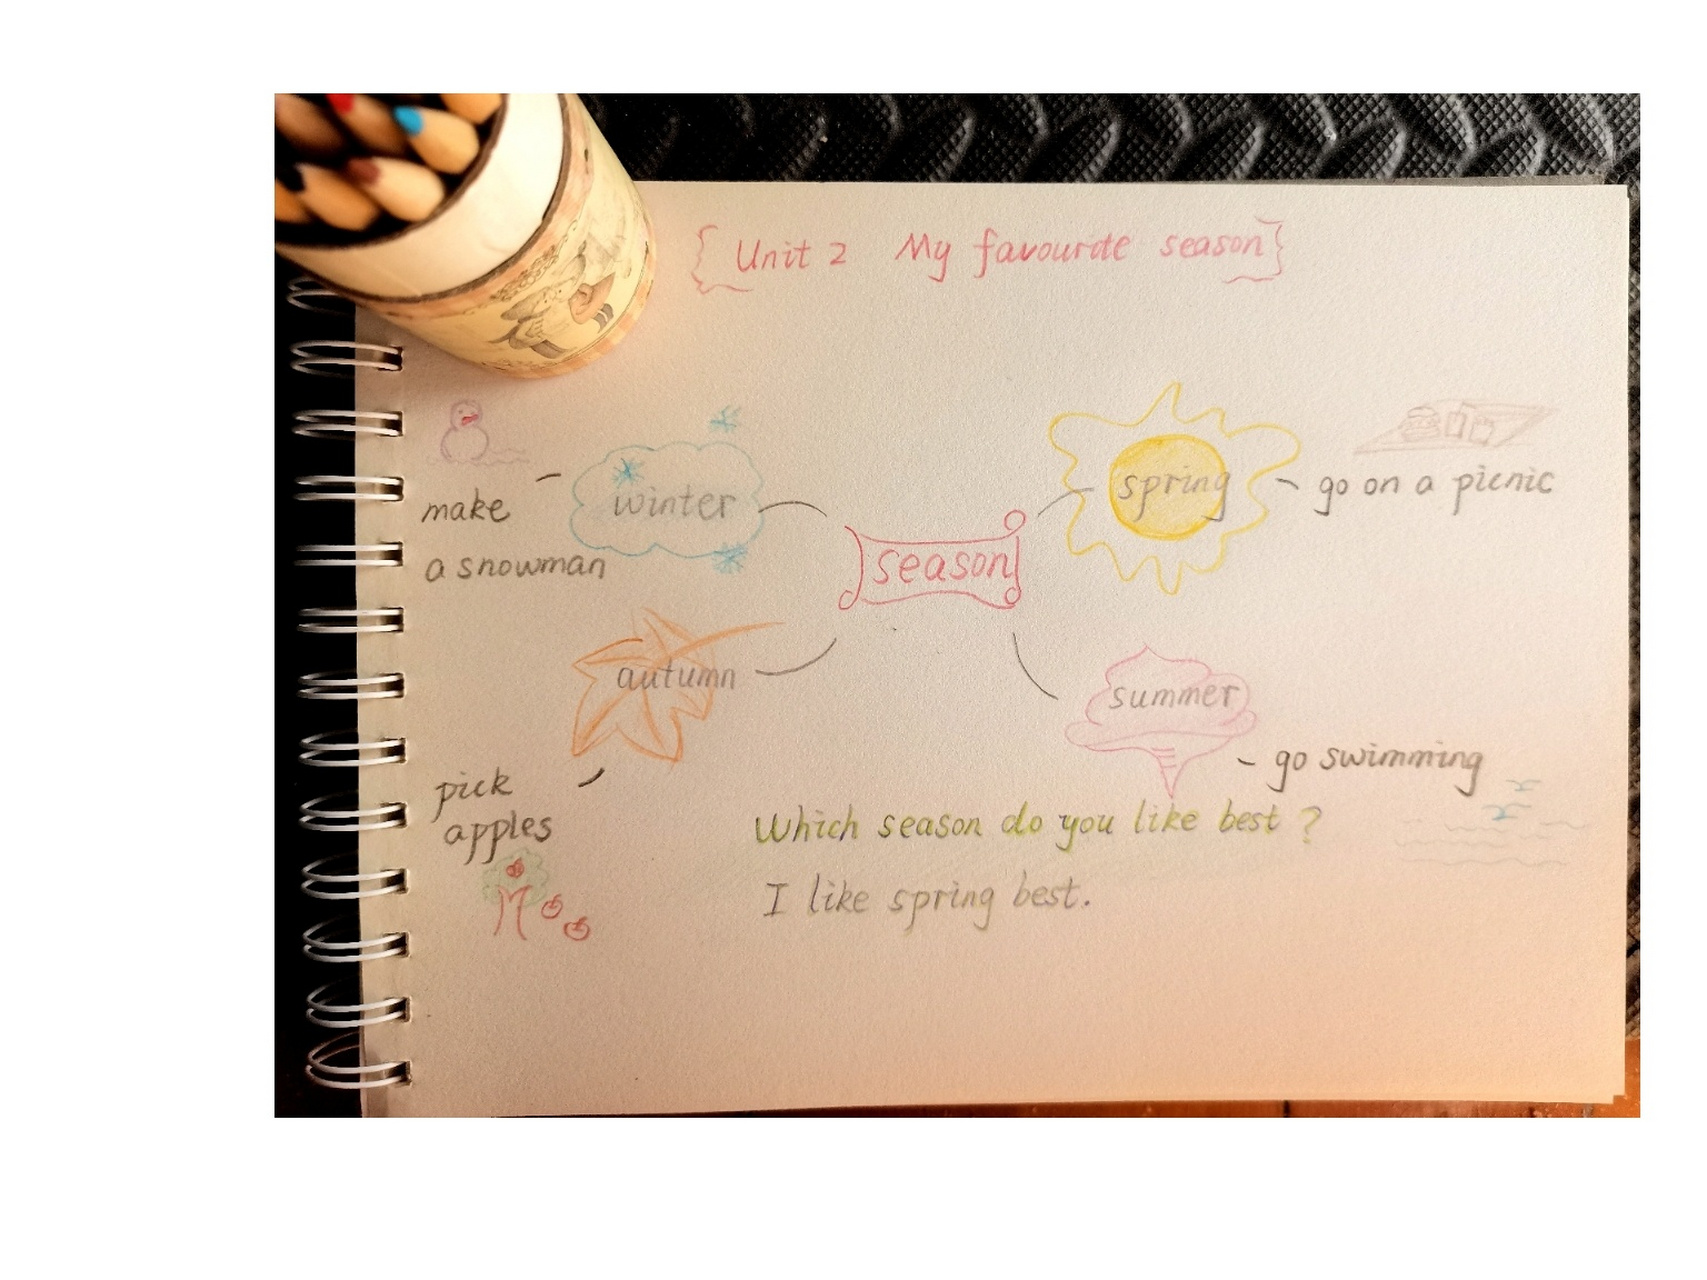 Unit 2 My favourite season
winter
make
a snowman
season
spring
go on a picnic
autumn
pick
apples
summer
go swimming
Which season do you like best ?
I like spring best.